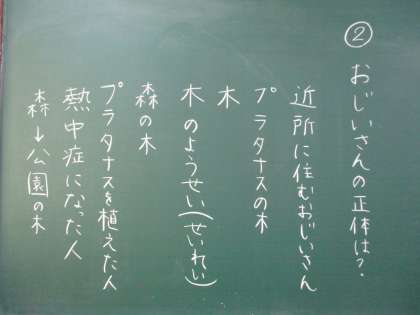 ② おじいさんの正体は?
近所に住むおじいさん
プラタナスの木
木
木のようせい(せいれい)
森の木
プラタナスを植えた人
熱中症になった人
森→公園の木